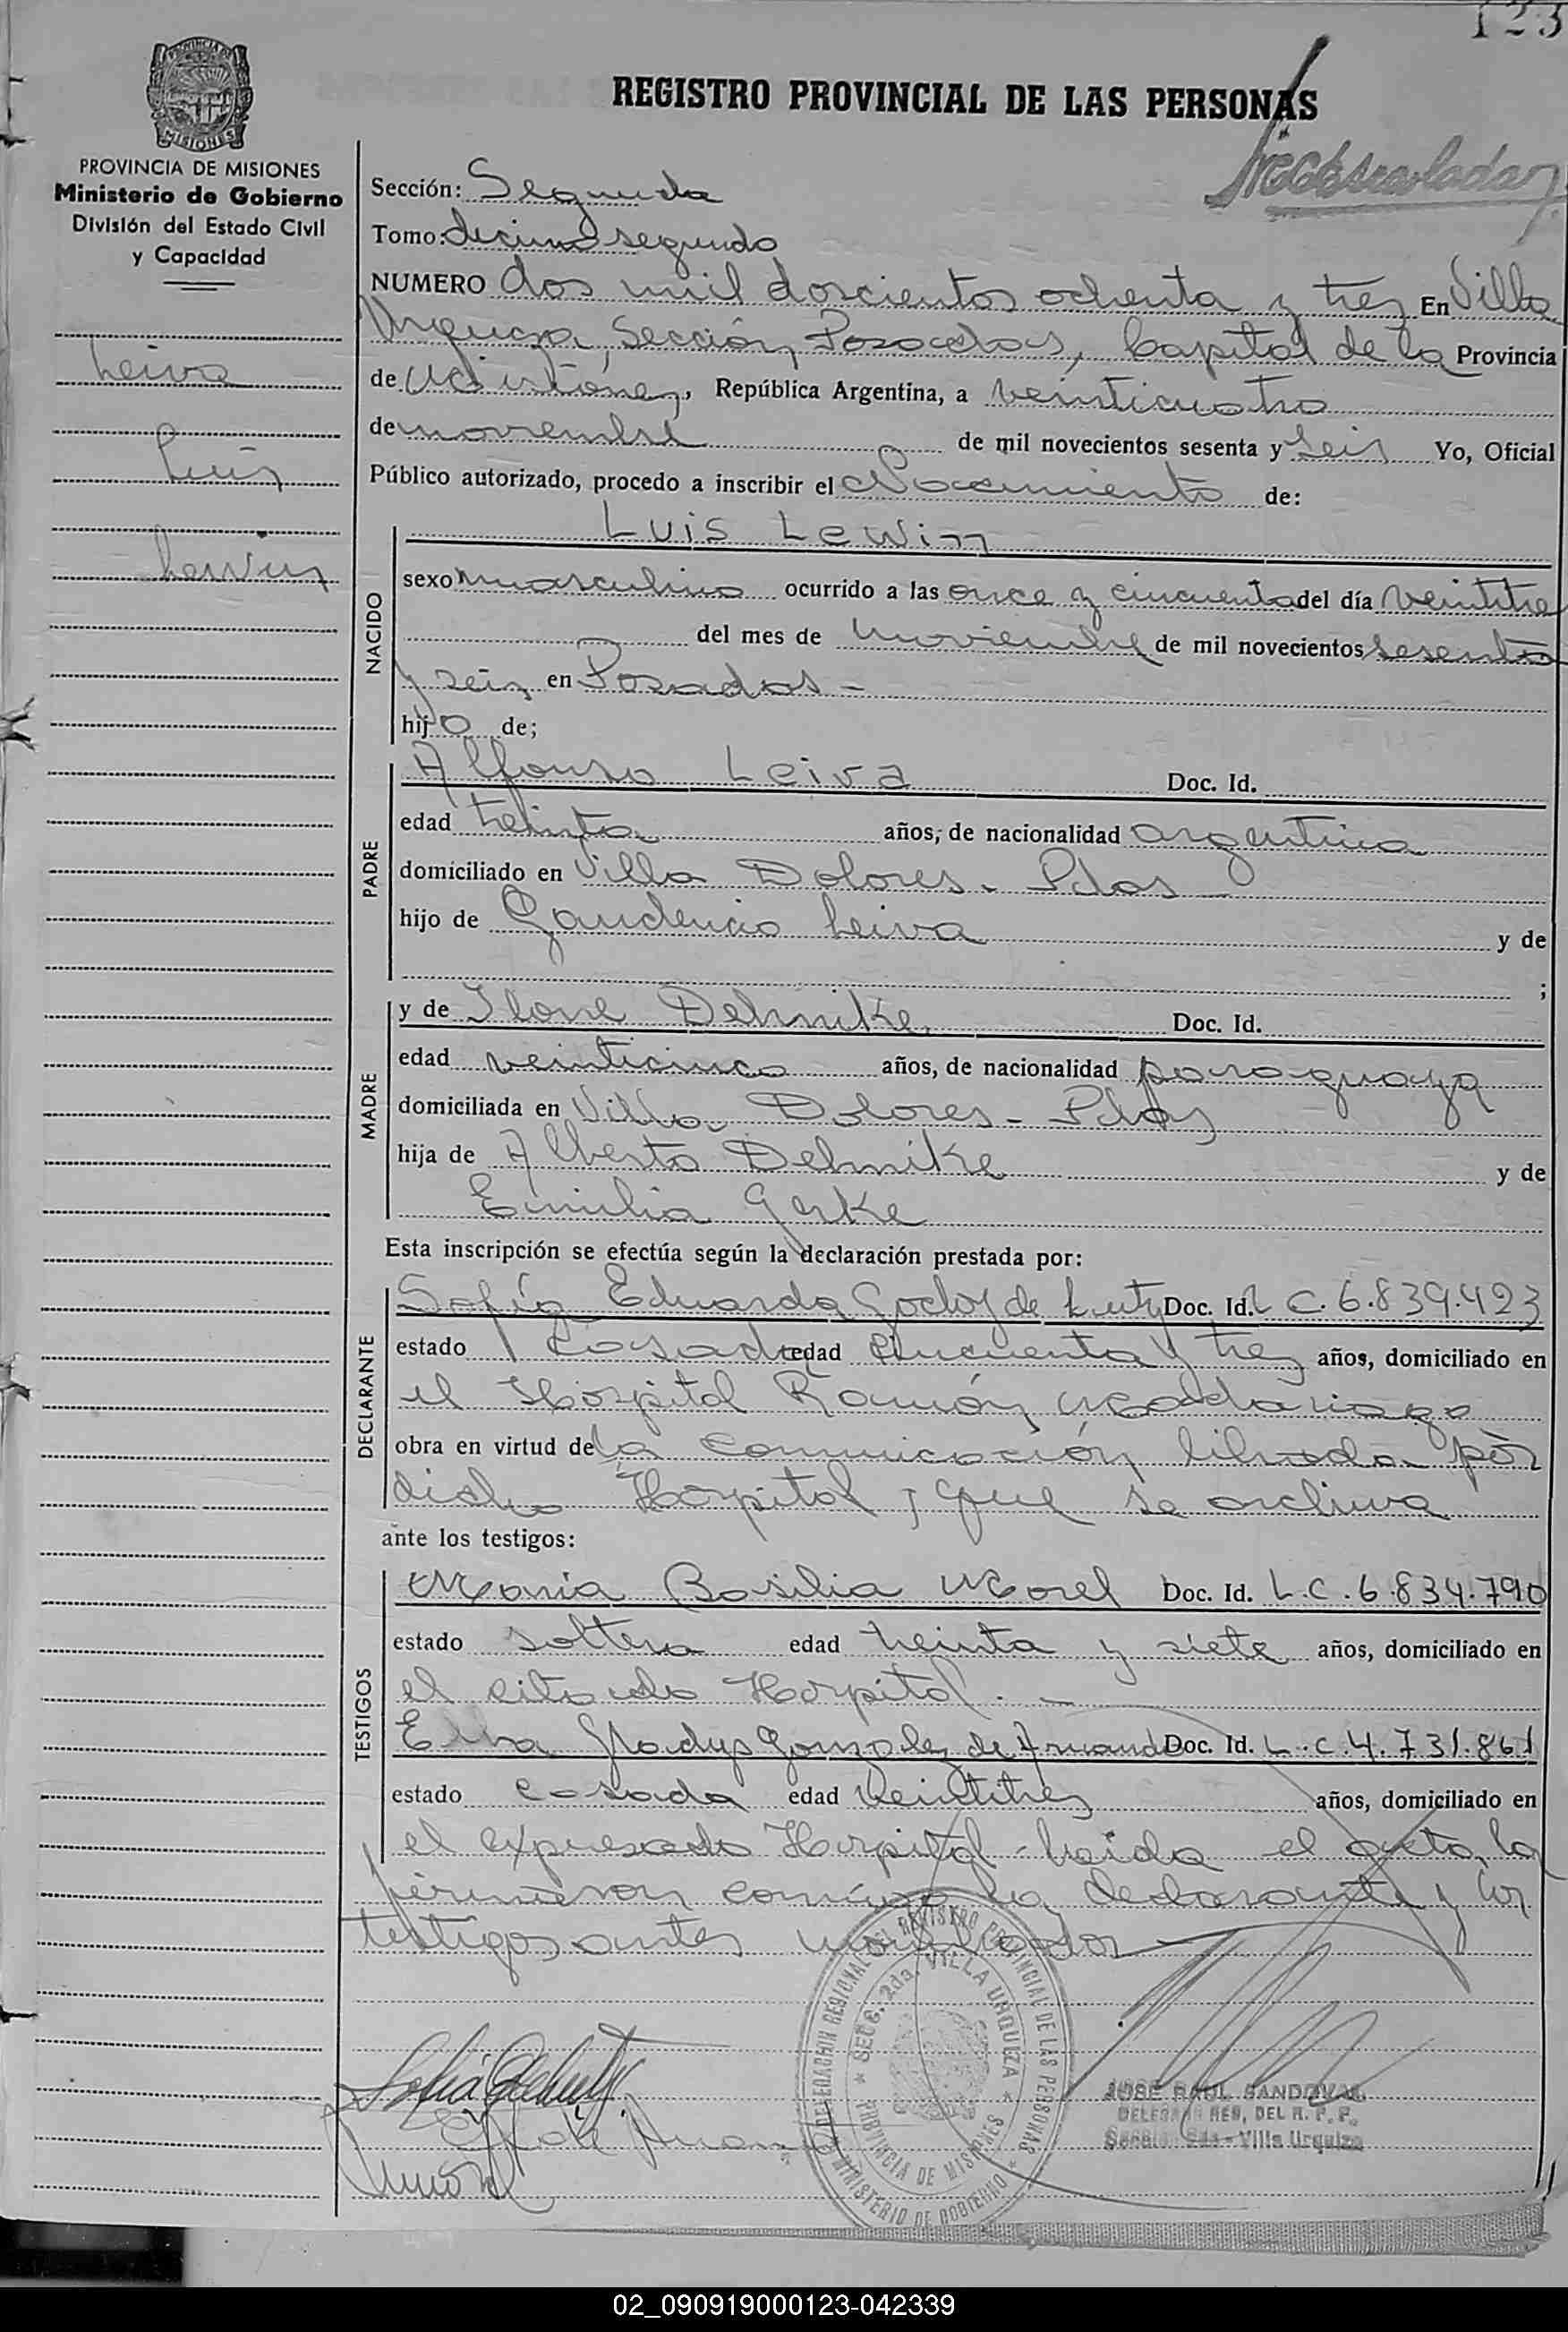 123
REGISTRO PROVINCIAL DE LAS PERSONAS
MISIONES
PROVINCIA DE MISIONES
Ministerio de Gobierno
División del Estado Civil
y Capacidad
Leiva
Luis
Lewin
Sección: Segunda
Tomo: decimo segundo
NUMERO dos mil doscientos ochenta y tres En Villa
Urquiza, Sección Posadas, Capital de la Provincia
de Misiones, República Argentina, a veinticuatro
de noviembre de mil novecientos sesenta y seis Yo, Oficial
Público autorizado, procedo a inscribir el Nacimiento de:
NACIDO
Luis Lewin
sexo masculino ocurrido a las once y cincuenta del día veintitre
del mes de noviembre de mil novecientos sesenta
y seis en Posadas -
hijo de;
PADRE
Alfonso Leiva Doc. Id.
edad treinta años, de nacionalidad argentina
domiciliado en Villa Dolores - Pdas
hijo de Gaudencio Leiva y de
;
MADRE
y de Ilone Dehmike Doc. Id.
edad veinticinco años, de nacionalidad paraguaya
domiciliada en Villa Dolores - Pdas
hija de Alberto Dehmike y de
Emilia Gerke
Esta inscripción se efectúa según la declaración prestada por:
DECLARANTE
Sofía Eduarda Godoy de Lutz Doc. Id. L C. 6.839.423
estado Casada edad cincuenta y tres años, domiciliado en
el Hospital Ramón Madariaga
obra en virtud de la comunicación librada por
dicho Hospital y que se archiva
ante los testigos:
TESTIGOS
Maria Basilia Morel Doc. Id. L.C. 6.834.790
estado soltera edad treinta y siete años, domiciliado en
el citado Hospital. -
Elba Gladys Gonzalez de Doc. Id. L.C. 4.731.861
estado casada edad veintitres años, domiciliado en
el expresado Hospital - Leida el acta, la
firmaron conmigo la declarante y los
testigos antes nombrados
DELEGACION REGIONAL REGISTRO PROVINCIAL DE LAS PERSONAS
MINISTERIO DE GOBIERNO
SECC. 2da. VILLA URQUIZA
PROVINCIA DE MISIONES
JOSE RAUL SANDOVAL
DELEGADO REG. DEL R. P. P.
Sección 2da - Villa Urquiza
02_090919000123-042339